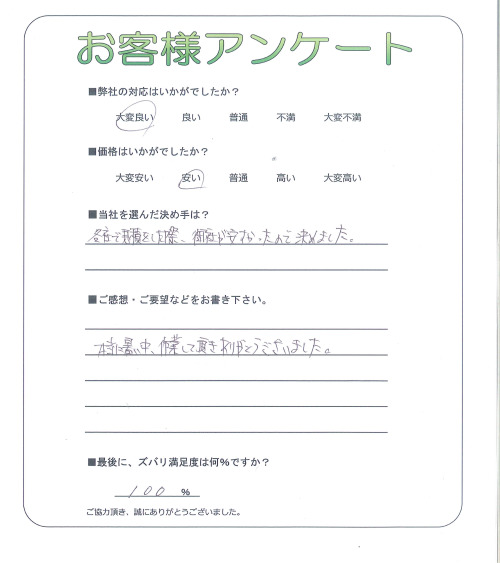 お客様アンケート
■弊社の対応はいかがでしたか？
大変良い 良い 普通 不満 大変不満
■価格はいかがでしたか？
大変安い 安い 普通 高い 大変高い
■当社を選んだ決め手は？
各社で見積をした際、御社が安かったので決めました。
■ご感想・ご要望などをお書き下さい。
本当に暑い中、作業して頂きありがとうございました。
■最後に、ズバリ満足度は何%ですか？
100 %
ご協力頂き、誠にありがとうございました。